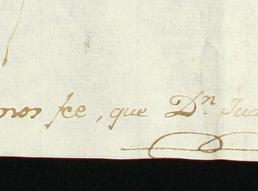 mos fee, que Dn Jua